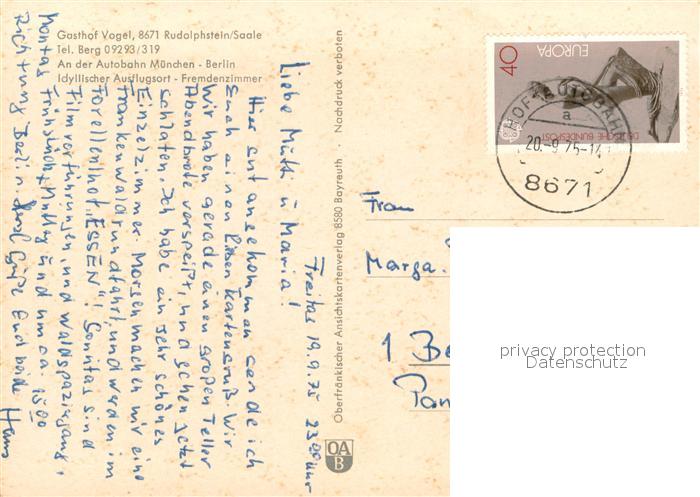 Gasthof Vogel, 8671 Rudolphstein/Saale
Tel. Berg 09293/319
An der Autobahn München - Berlin
Idyllischer Ausflugsort - Fremdenzimmer
Freitag 19.9.75 23 00 Uhr
Liebe Mutti u Maria!
Hier gut angekommen sende ich
Euch einen lieben Kartengruß. Wir
Wir haben gerade einen großen Teller
Abendbrote verspeißt, und gehen jetzt
schlafen. Ich habe ein sehr schönes
Einzelzimmer. Morgen machen wir eine
Frankenwaldrundfahrt, und werden im
Forellenhof "ESSEN"! Sonntag sind
Filmvorführungen, und Waldspaziergang,
Montag Frühstück, und um ca. 1500
Richtung Berlin. Herzl Grüße Euch beide Hans
Oberfränkischer Ansichtskartenverlag 8580 Bayreuth · Nachdruck verboten
OA
B
40
EUROPA
DEUTSCHE BUNDESPOST
CEPT
HOF-AUTOBAHN
a
20.-9.75-14
8671
Frau
Marga.
1 Be
Pan
privacy protection
Datenschutz